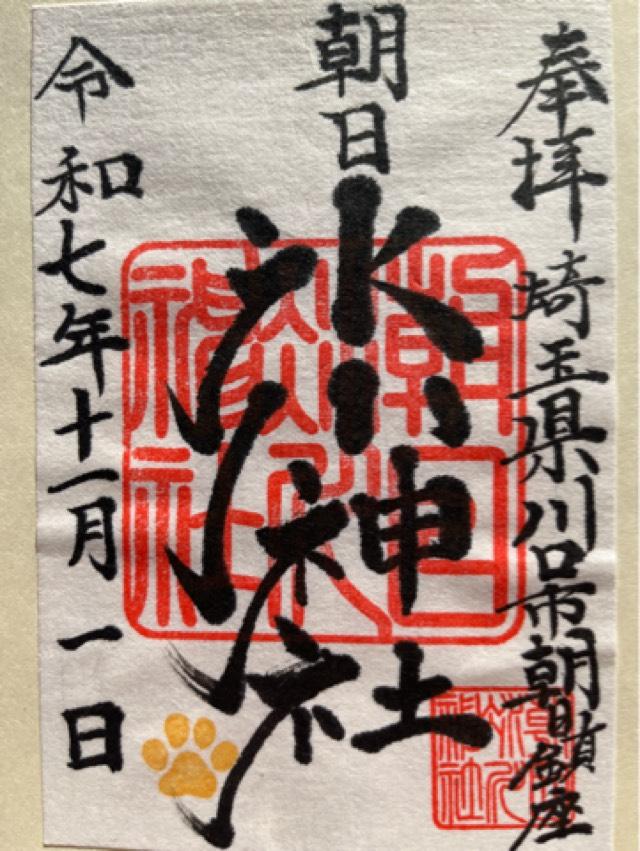 奉拝 埼玉県川口市朝日鎮座
朝日
氷川神社
令和七年十一月一日